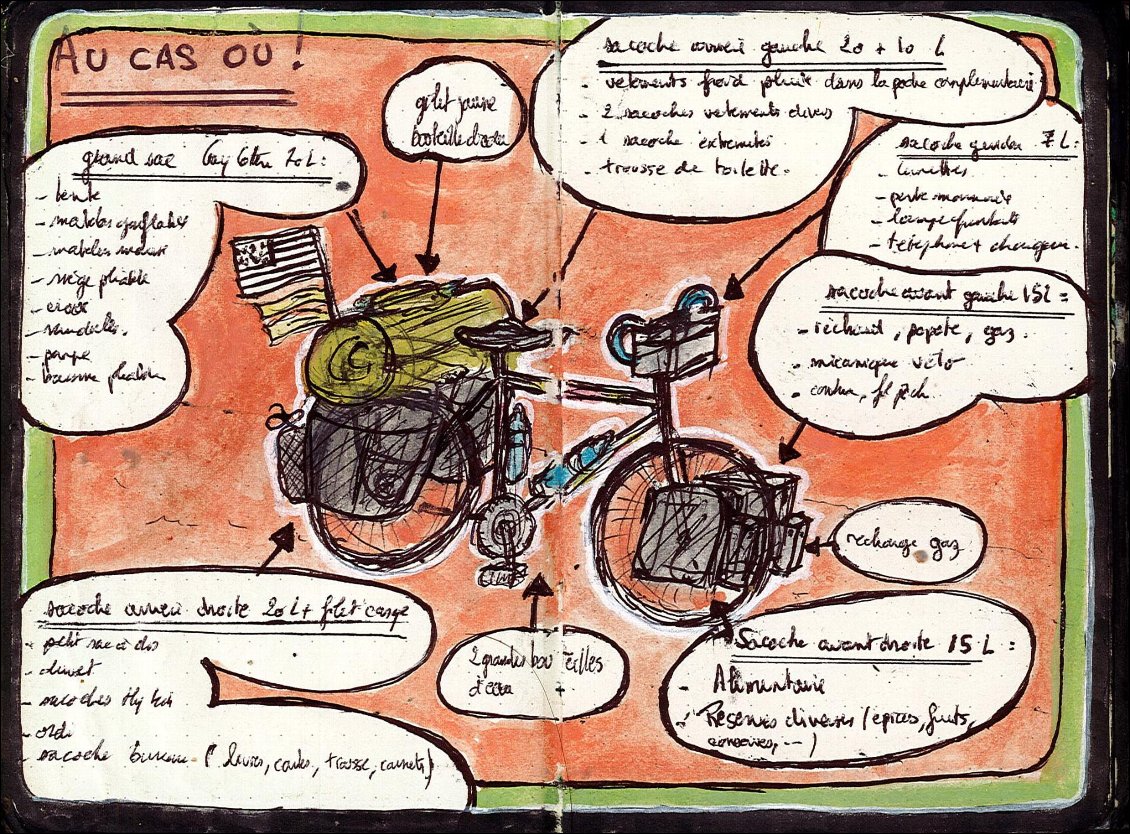 AU CAS OU !
gilet jaune
bouteille d'eau
sacoche arrière gauche 20 + 10 L
- vetements froid pluie dans la poche complementaire
- 2 sacoches vetements divers
- 1 sacoche extremités
- trousse de toilette.
grand sac 20 L :
- tente
- matelas gonflable
- matelas
- siège pliable
-
-
- pompe
- pliable
sacoche guidon 7 L :
- lunettes
- porte monnaie
- lampe frontale
- téléphone + chargeur.
sacoche avant gauche 15 L :
- réchaud, popote, gaz.
- mécanique vélo
-
recharge gaz
sacoche arrière droite 20 L + filet casque
- petit sac à dos
- duvet
- sacoches
- ordi
- sacoche bureau ( livres, cartes, trousse, carnets)
2 grandes bouteilles
d'eau
Sacoche avant droite 15 L :
- Alimentaire
- Réserves diverses (épices, fruits,
conserves, ---)